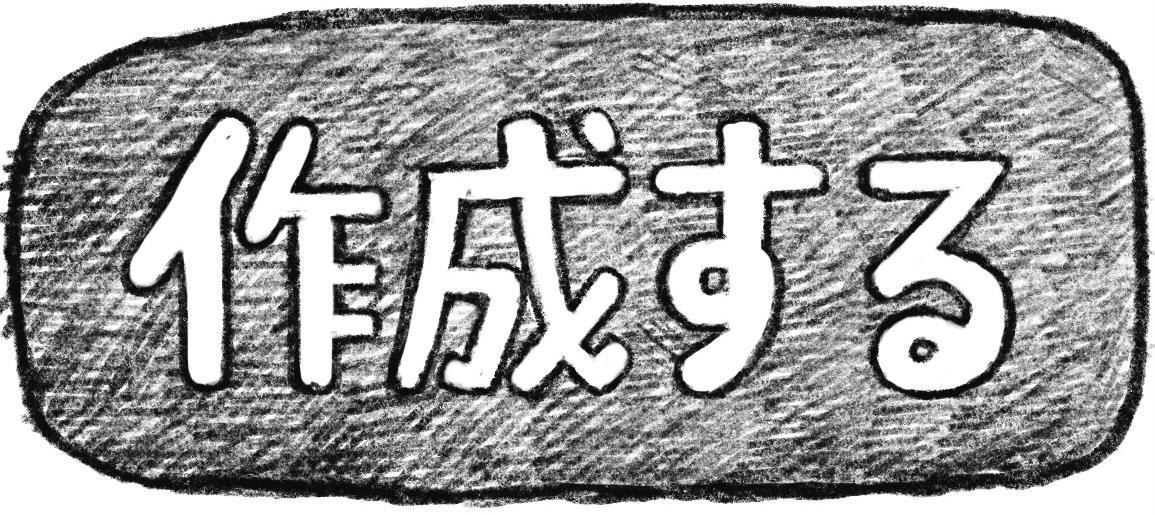 作成する